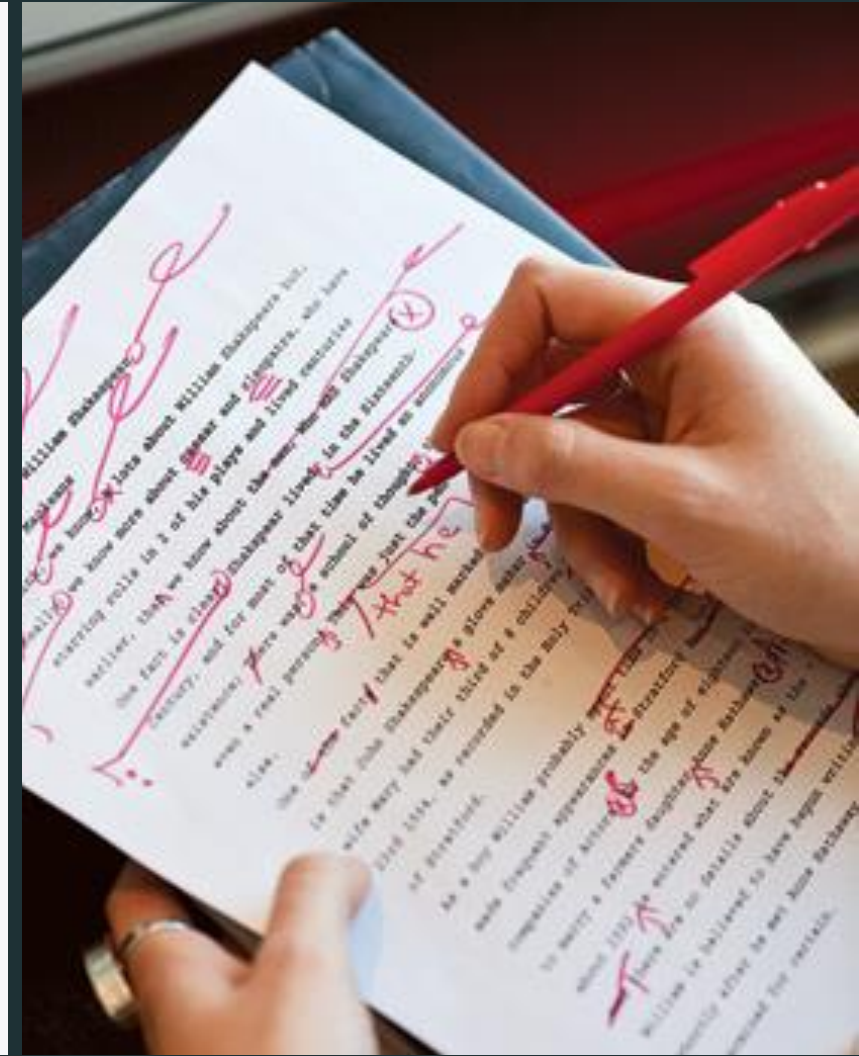 William Shakespear
we know lots about William Shakespeare but,
we know more about caesar and cleopatra, who have
starring rolls in 2 of his plays and lived centuries
earlier, than we know about the man who was Shakespear
One fact is clear Shakespear lived in the Sixteenth
century, and for most of that time he lived an anonymous
existence; there was a school of thought
that he
even a real person was just the
else.
One fact that is well marked
is that John Shakespeare a glove maker
wife mary had their third of 8 children
1564, as recorded in the Holy
of Stratford.
As a boy William probably
made frequent appearances in Stratford
companies of Actor the age of eighteen
to marry a farmers daughter Anne Hathaway
about entered what are known as the
there are no details about
William is believed to have begun writing
shortly after he met Anne Hathaway
for certain.